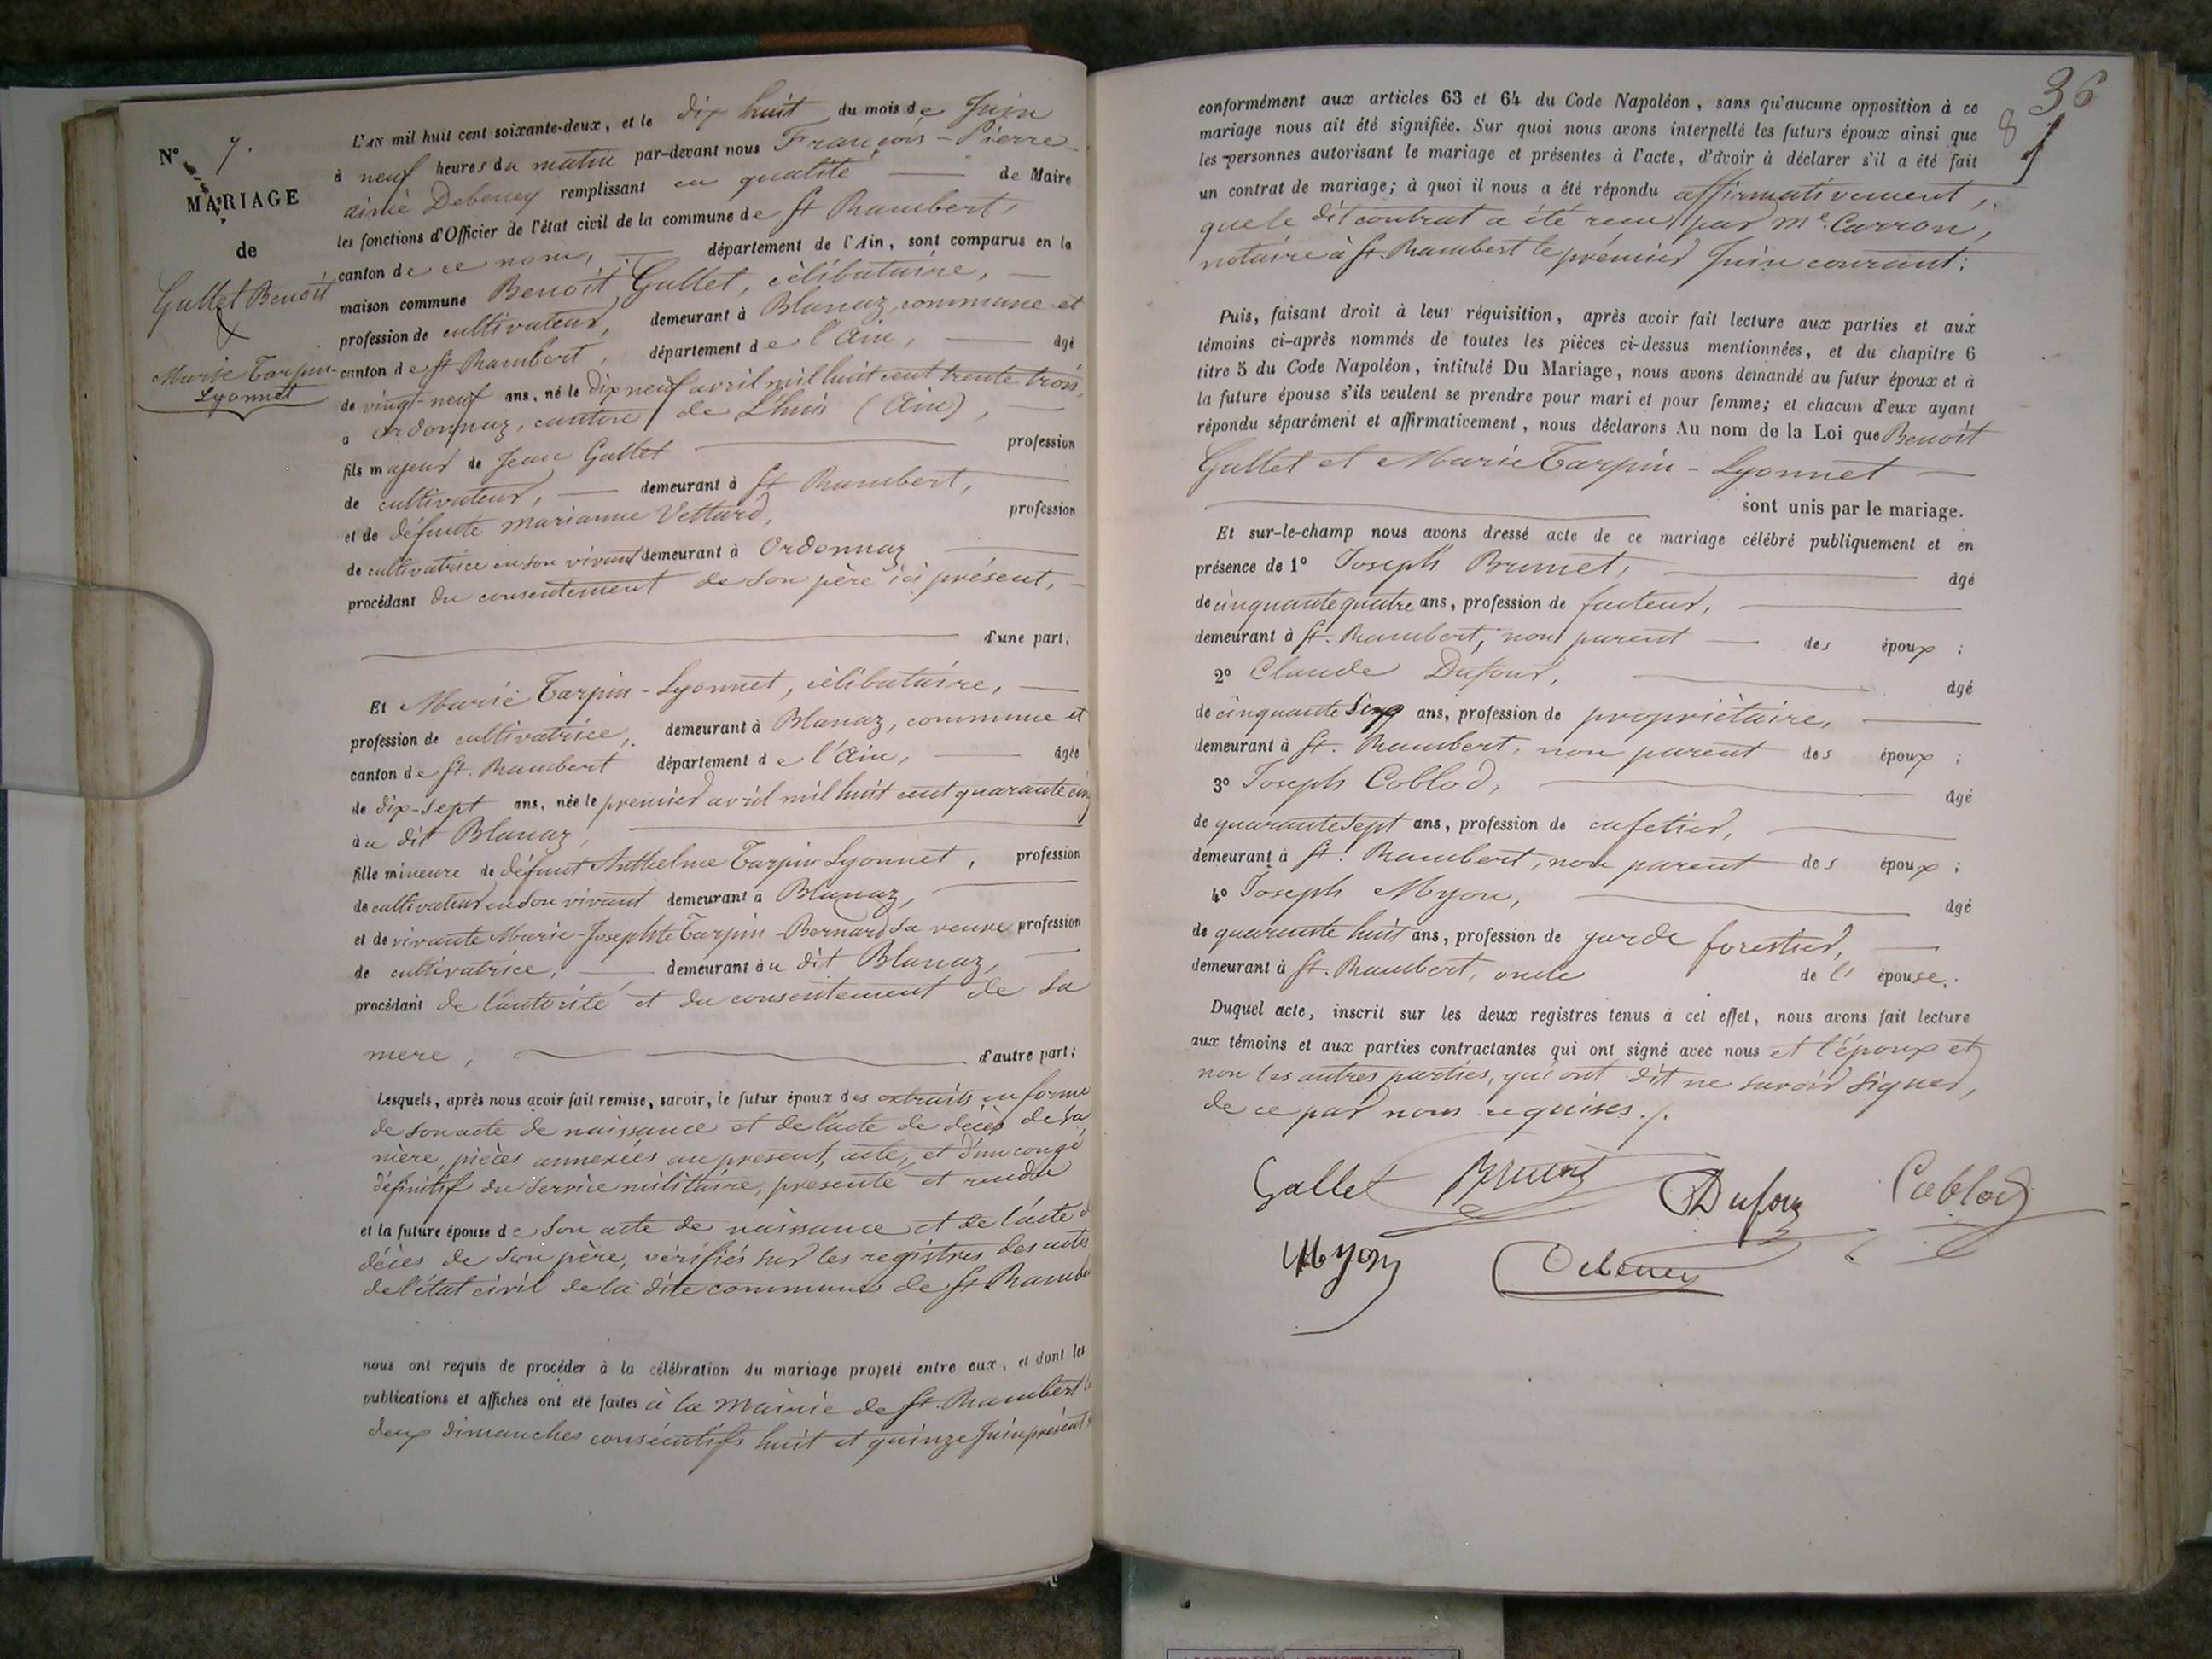 N° 7.
MARIAGE
de
Gallet Benoît
&
Marie Tarpin-
Lyonnet
L'AN mil huit cent soixante-deux, et le dix huit du mois de Juin
à neuf heures du matin par-devant nous François-Pierre-
aimé Debeney remplissant en qualité de Maire
les fonctions d'Officier de l'état civil de la commune de St Rambert,
canton de ce nom, département de l'Ain, sont comparus en la
maison commune Benoît Gallet, célibataire,
profession de cultivateur, demeurant à Blanaz, commune et
canton de St Rambert, département de l'Ain, âgé
de vingt-neuf ans, né le dix neuf avril mil huit cent trente trois,
à Ordonnaz, canton de L'huis (Ain),
fils majeur de Jean Gallet profession
de cultivateur, demeurant à St Rambert,
et de défunte Marianne Vettard, profession
de cultivatrice en son vivant demeurant à Ordonnaz
procédant du consentement de son père ici présent,
d'une part;
Et Marie Tarpin-Lyonnet, célibataire,
profession de cultivatrice, demeurant à Blanaz, commune et
canton de St. Rambert département de l'Ain, âgée
de dix-sept ans, née le premier avril mil huit cent quarante cinq
àu dit Blanaz,
fille mineure de défunt Anthelme Tarpin Lyonnet, profession
de cultivateur en son vivant demeurant à Blanaz,
et de vivante Marie-Josephte Tarpin-Bernard sa veuve profession
de cultivatrice, demeurant àu dit Blanaz,
procédant de l'autorité et du consentement de sa
mere, d'autre part;
Lesquels, après nous avoir fait remise, savoir, le futur époux des extraits en forme
de son acte de naissance et de l'acte de décès de sa
mère, pièces annexées au présent acte, et d'un congé
définitif du service militaire, présenté et rendu
et la future épouse de son acte de naissance et de l'acte d
décès de son père, vérifiés sur les registres des actes
de l'état civil de la dite commune de St Rambe
nous ont requis de procéder à la célébration du mariage projeté entre eux, et dont les
publications et affiches ont été faites à la Mairie de St. Rambert
deux dimanches consécutifs huit et quinze Juin présent
36
8
conformément aux articles 63 et 64 du Code Napoléon, sans qu'aucune opposition à ce
mariage nous ait été signifiée. Sur quoi nous avons interpellé les futurs époux ainsi que
les personnes autorisant le mariage et présentes à l'acte, d'avoir à déclarer s'il a été fait
un contrat de mariage; à quoi il nous a été répondu affirmativement,
que le dit contrat a été recu par Me. Carron,
notaire à St. Rambert le prémier Juin courant;
Puis, faisant droit à leur réquisition, après avoir fait lecture aux parties et aux
témoins ci-après nommés de toutes les pièces ci-dessus mentionnées, et du chapitre 6
titre 5 du Code Napoléon, intitulé Du Mariage, nous avons demandé au futur époux et à
la future épouse s'ils veulent se prendre pour mari et pour femme; et chacun d'eux ayant
répondu séparément et affirmativement, nous déclarons Au nom de la Loi que Benoît
Gallet et Marie Tarpin-Lyonnet
sont unis par le mariage.
Et sur-le-champ nous avons dressé acte de ce mariage célébré publiquement et en
présence de 1° Joseph Brunet, âgé
de cinquante quatre ans, profession de facteur,
demeurant à St. Rambert, non parent des époux;
2° Claude Dufour, âgé
de cinquante ans, profession de propriétaire,
demeurant à St. Rambert, non parent des époux;
3° Joseph Coblod, âgé
de quarante sept ans, profession de cafetier,
demeurant à St. Rambert, non parent des époux;
4° Joseph Myon, âgé
de quarante huit ans, profession de garde forestier,
demeurant à St. Rambert, oncle de l' épouse.
Duquel acte, inscrit sur les deux registres tenus à cet effet, nous avons fait lecture
aux témoins et aux parties contractantes qui ont signé avec nous et l'époux et
non les autres parties, qui ont dit ne savoir signer,
de ce par nous requises./.
Gallet Brunet Dufour Coblod
Myon Debeney